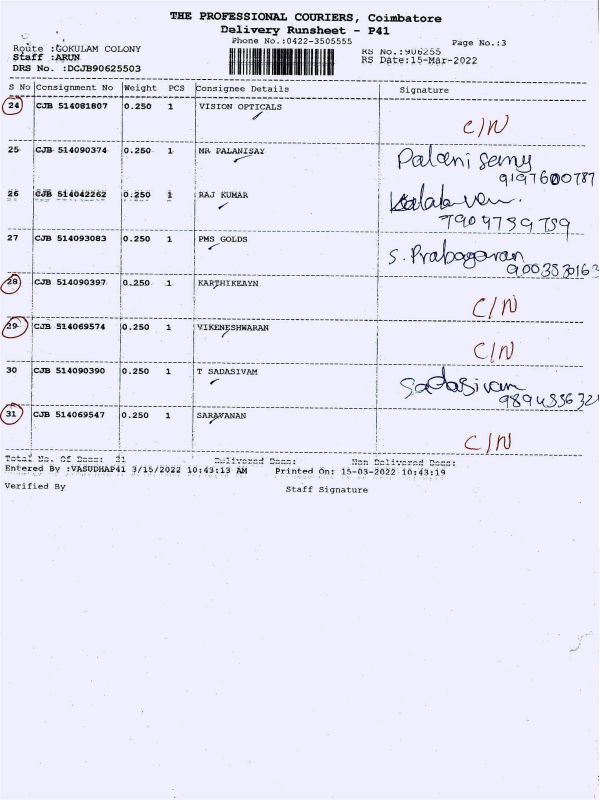 THE PROFESSIONAL COURIERS, Coimbatore
Delivery Runsheet - P41
Phone No.:0422-3505555
Page No.:3
Route :GOKULAM COLONY
RS No.:906255
Staff :ARUN
RS Date:15-Mar-2022
DRS No. :DCJB90625503
S No Consignment No Weight PCS Consignee Details Signature
24 CJB 514081807 0.250 1 VISION OPTICALS
C/N
25 CJB 514090374 0.250 1 MR PALANISAY Palani Samy
9197600787
26 CJB 514042262 0.250 1 RAJ KUMAR
7904759759
27 CJB 514093083 0.250 1 PMS GOLDS S. Prabagaran
28 CJB 514090397 0.250 1 KARTHIKEAYN
C/N
29 CJB 514069574 0.250 1 VIKENESHWARAN
C/N
30 CJB 514090390 0.250 1 T SADASIVAM Sadasivam
31 CJB 514069547 0.250 1 SARAVANAN
C/N
Total No. Of Docs: 31 Delivered Docs: Non Delivered Docs:
Entered By :VASUDHAP41 3/15/2022 10:43:13 AM Printed On: 15-03-2022 10:43:19
Verified By Staff Signature